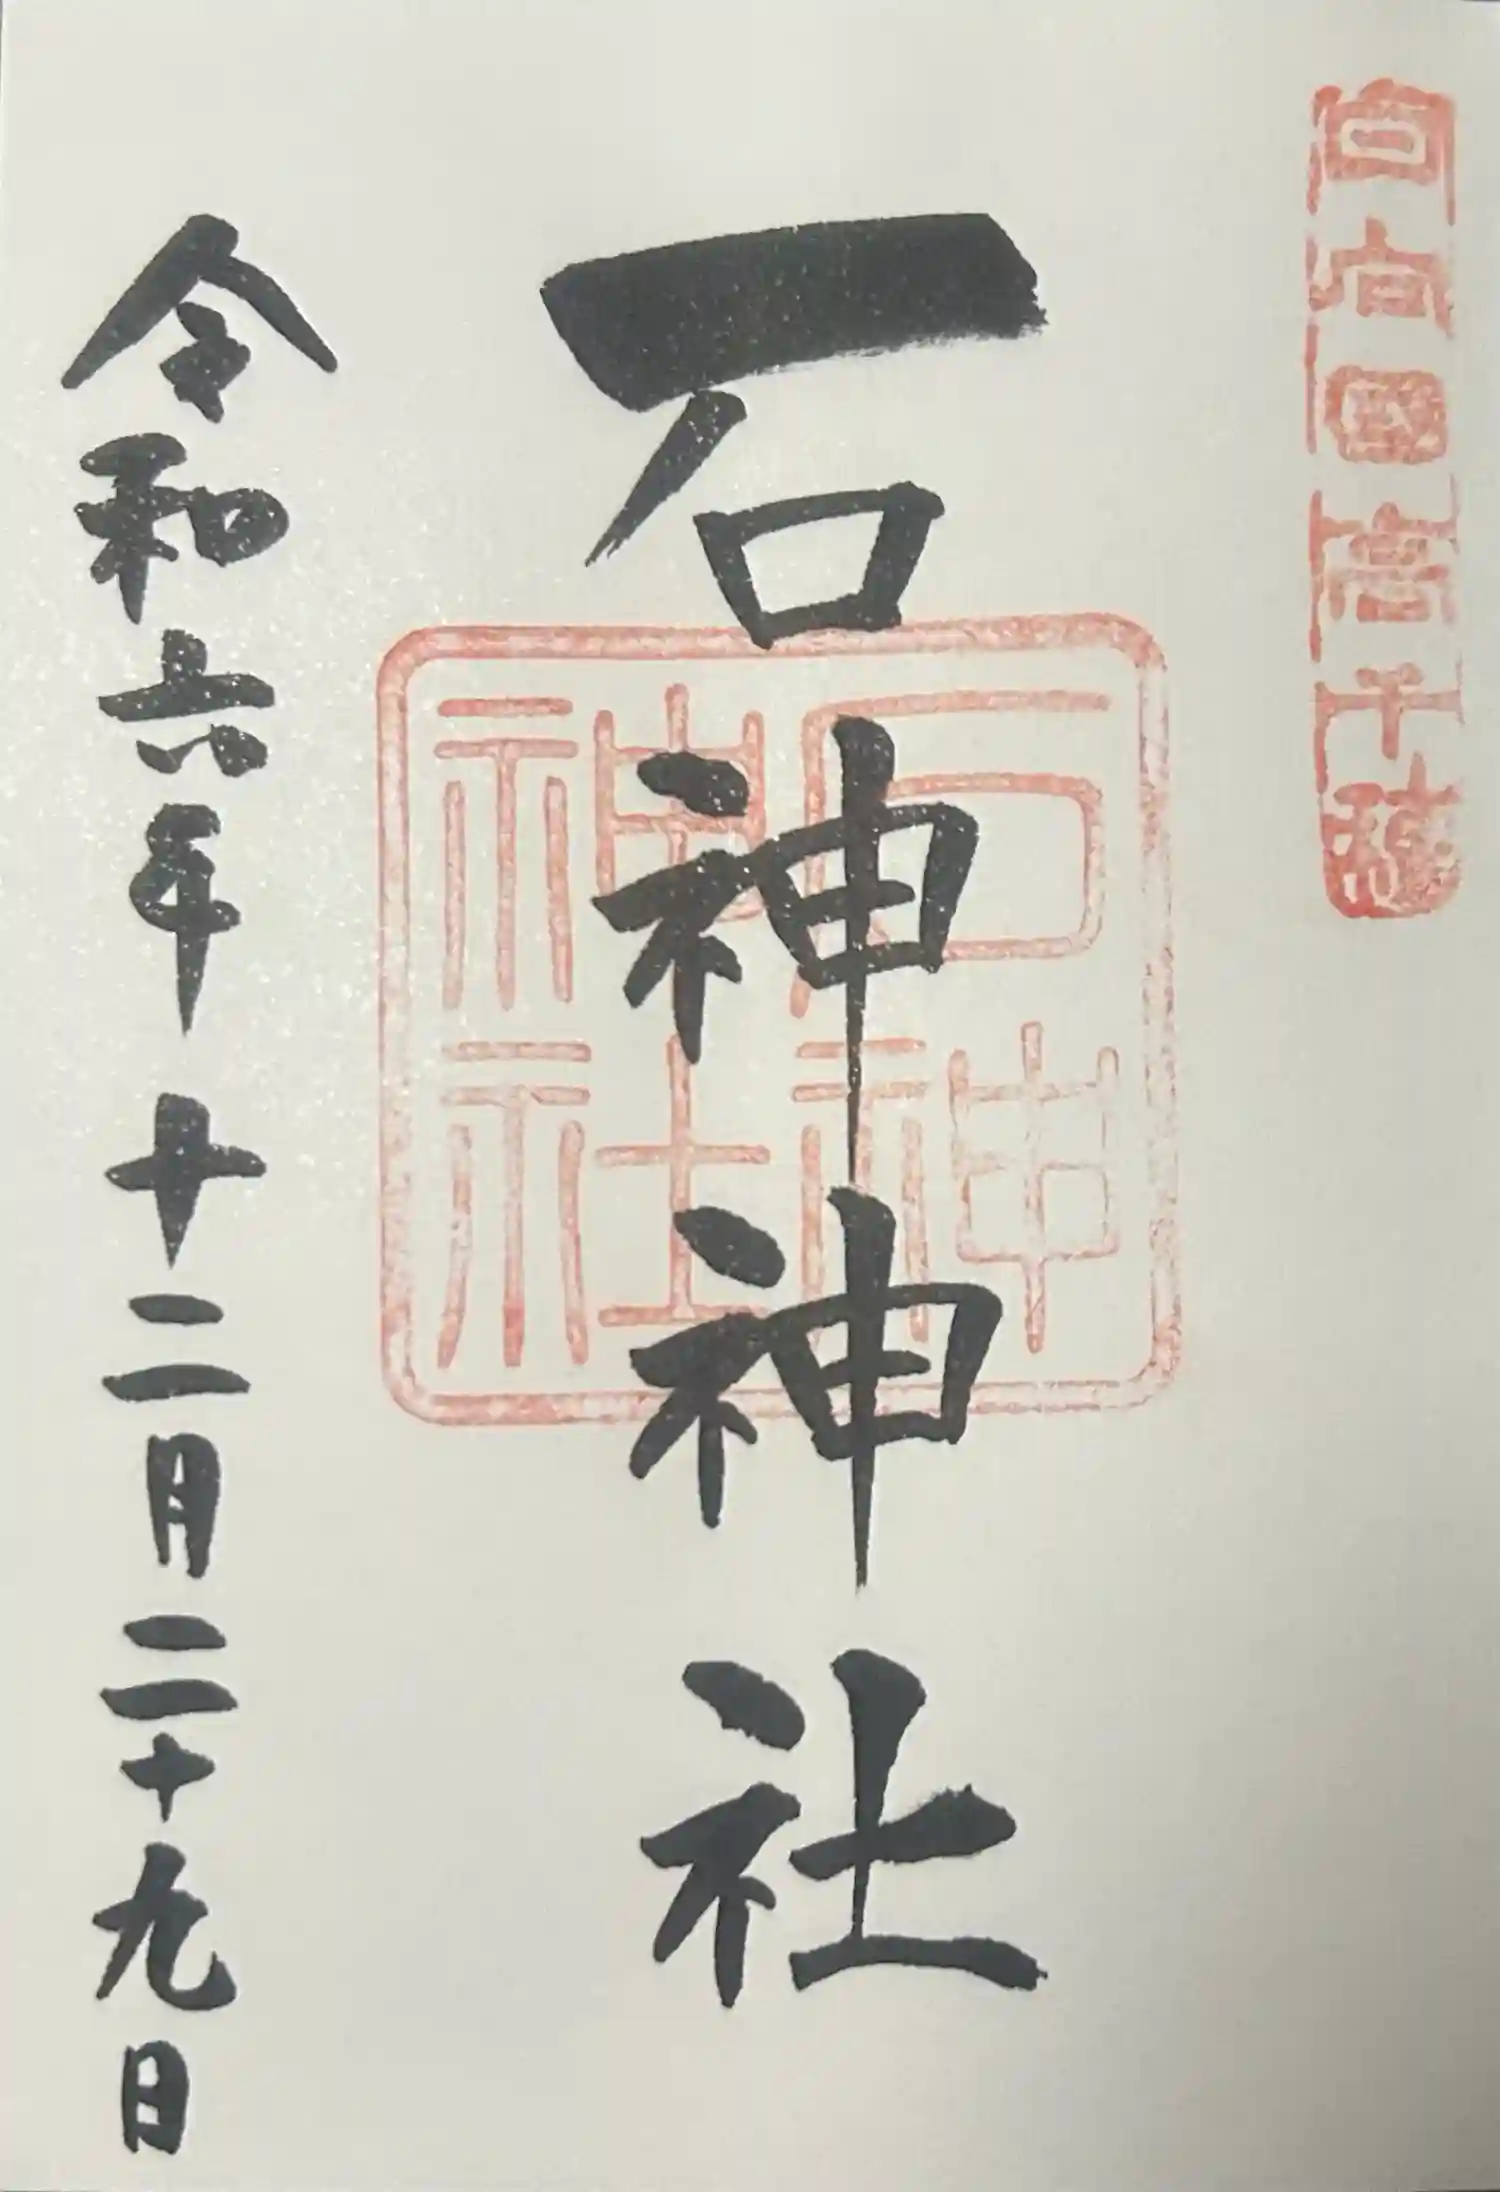 石神神社
石神
神社
令和六年十二月二十九日